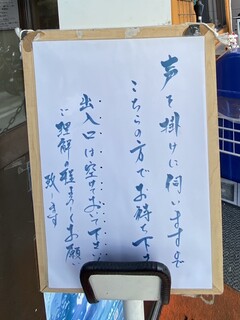 声を掛けに伺いますので
こちらの方でお待ち下さ
出入口は空けておいて下さい
ご理解の程よろしくお願い
致します